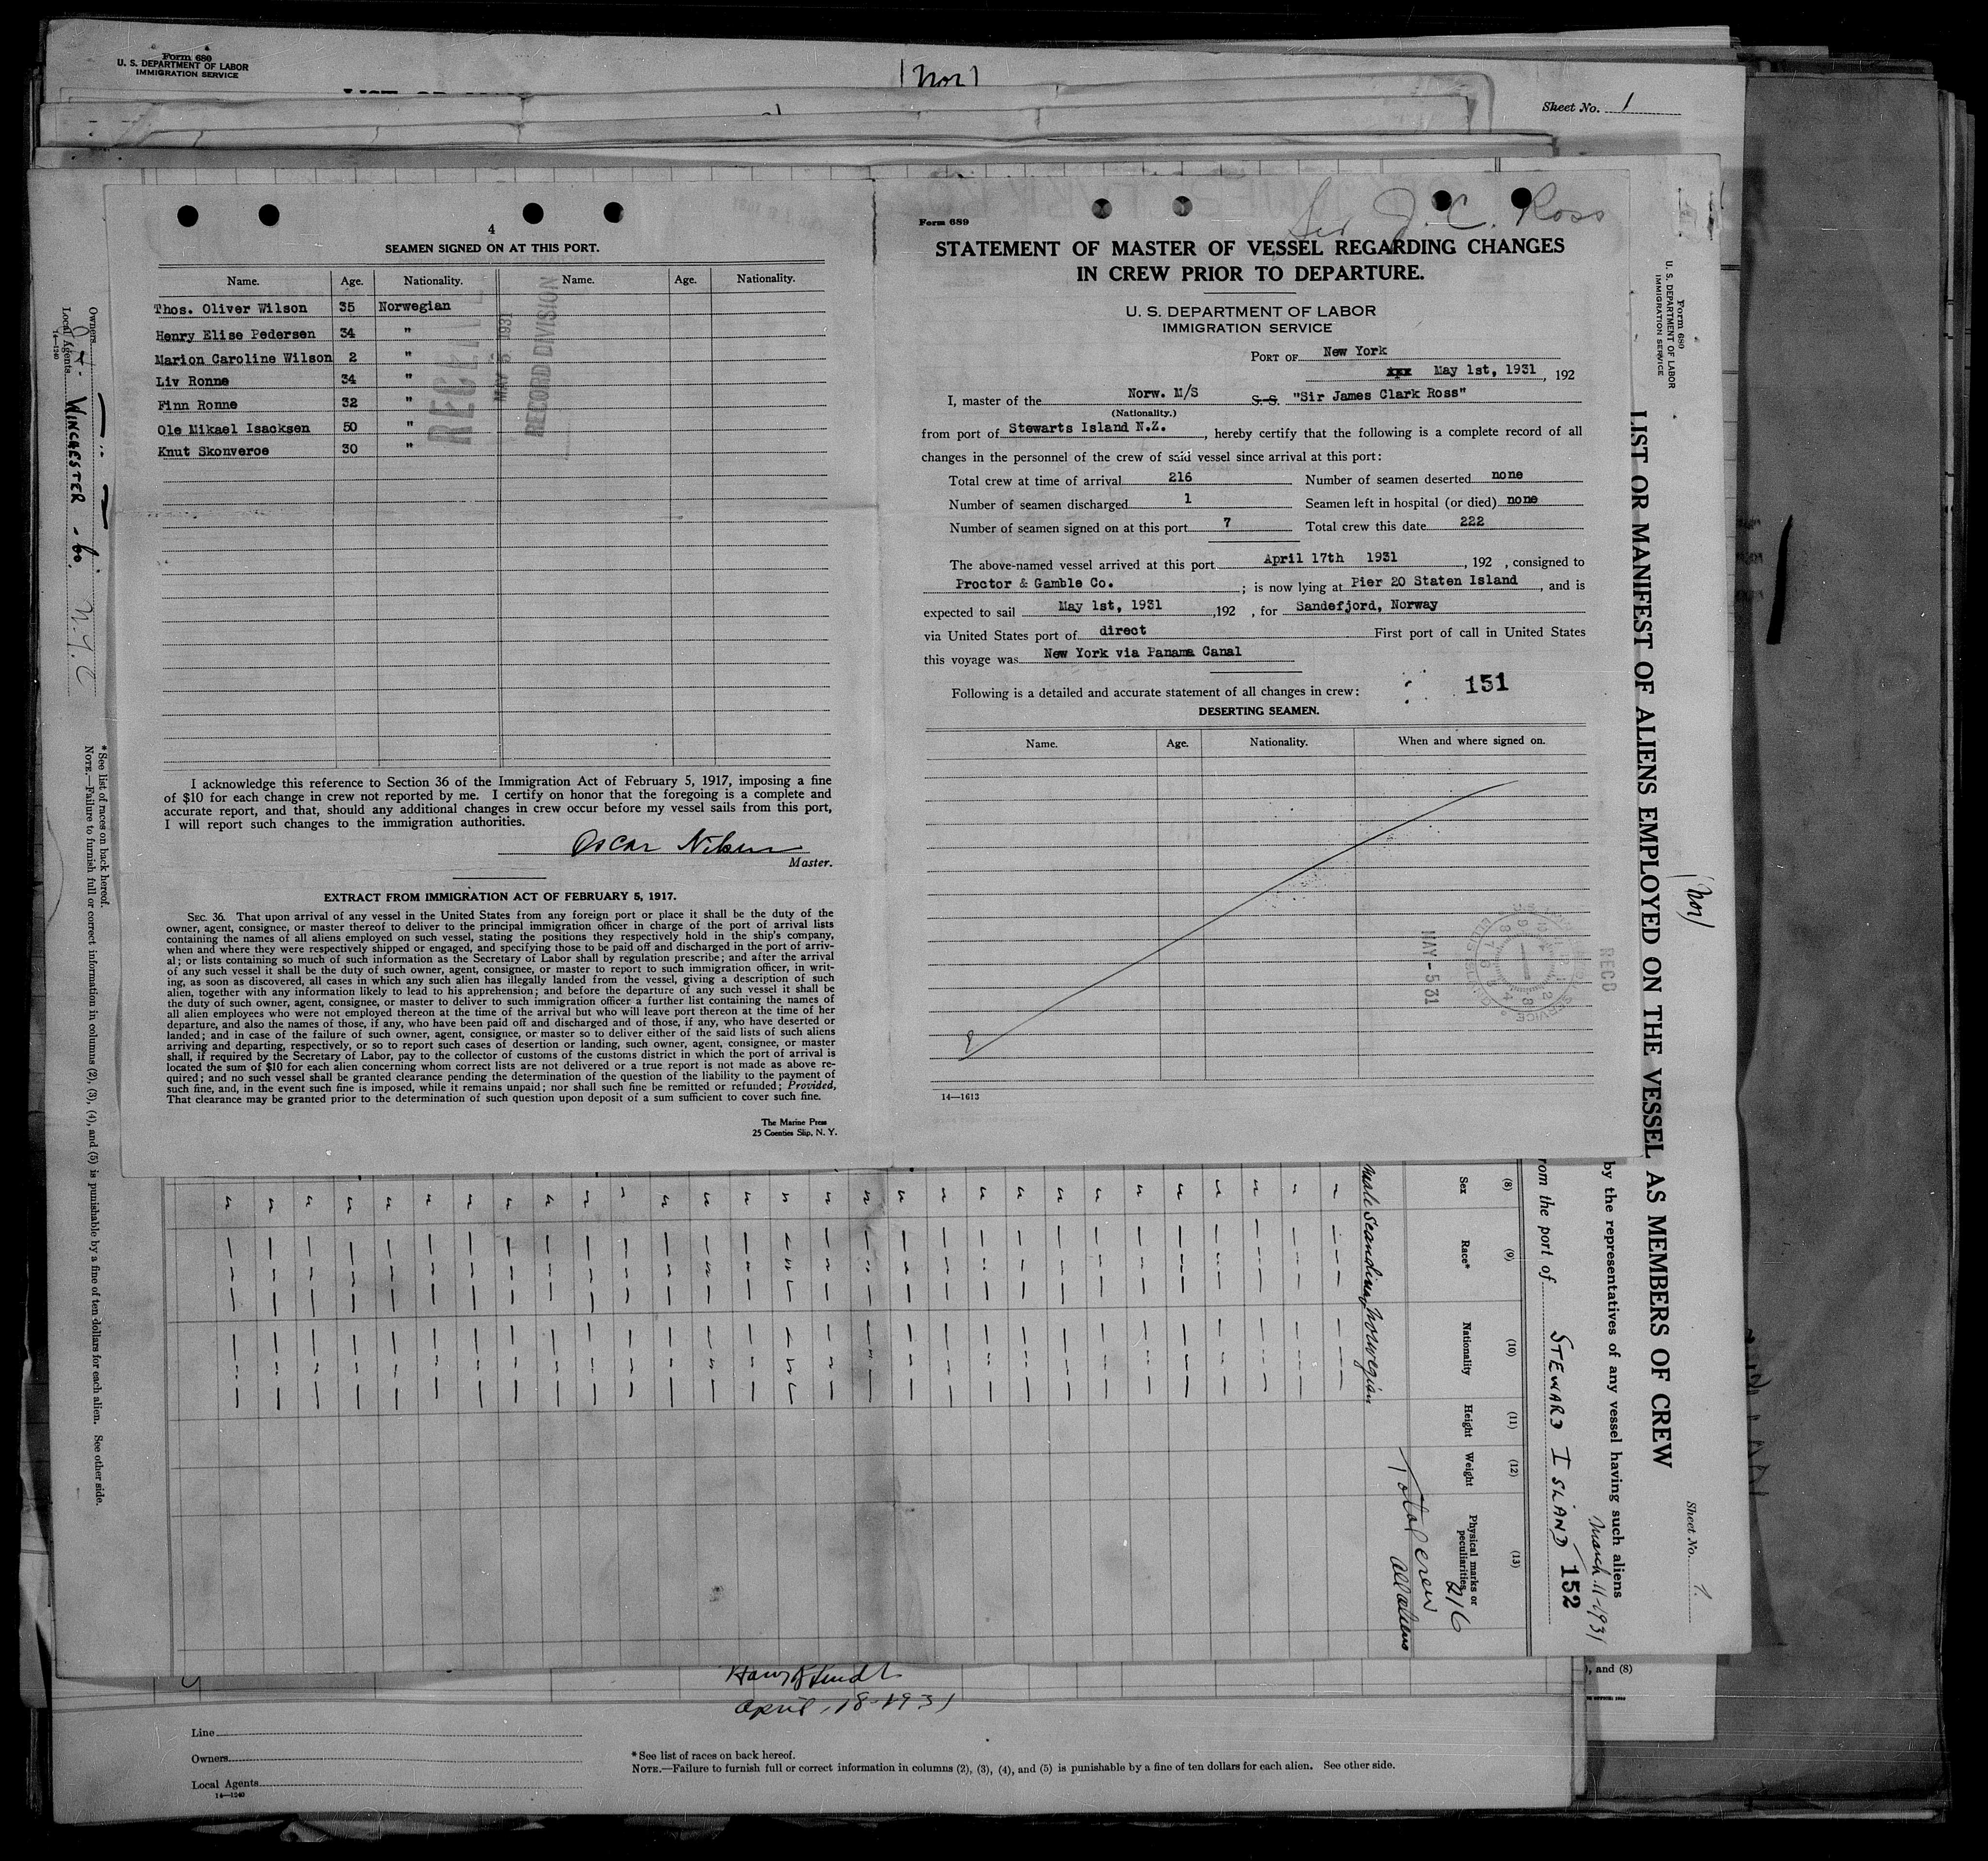 Form 680
U. S. DEPARTMENT OF LABOR
IMMIGRATION SERVICE
(Nor)
Sheet No. 1
4
SEAMEN SIGNED ON AT THIS PORT.
Name. Age. Nationality. Name. Age. Nationality.
Thos. Oliver Wilson 35 Norwegian
Henry Elise Pedersen 34 "
Marion Caroline Wilson 2 "
Liv Ronne 34 "
Finn Ronne 32 "
Ole Mikael Isacksen 50 "
Knut Skonveroe 30 "
MAY 5 1931
RECORD DIVISION
I acknowledge this reference to Section 36 of the Immigration Act of February 5, 1917, imposing a fine
of $10 for each change in crew not reported by me. I certify on honor that the foregoing is a complete and
accurate report, and that, should any additional changes in crew occur before my vessel sails from this port,
I will report such changes to the immigration authorities.
Oscar Nilsen
Master.
EXTRACT FROM IMMIGRATION ACT OF FEBRUARY 5, 1917.
SEC. 36. That upon arrival of any vessel in the United States from any foreign port or place it shall be the duty of the
owner, agent, consignee, or master thereof to deliver to the principal immigration officer in charge of the port of arrival lists
containing the names of all aliens employed on such vessel, stating the positions they respectively hold in the ship's company,
when and where they were respectively shipped or engaged, and specifying those to be paid off and discharged in the port of arriv-
al; or lists containing so much of such information as the Secretary of Labor shall by regulation prescribe; and after the arrival
of any such vessel it shall be the duty of such owner, agent, consignee, or master to report to such immigration officer, in writ-
ing, as soon as discovered, all cases in which any such alien has illegally landed from the vessel, giving a description of such
alien, together with any information likely to lead to his apprehension; and before the departure of any such vessel it shall be
the duty of such owner, agent, consignee, or master to deliver to such immigration officer a further list containing the names of
all alien employees who were not employed thereon at the time of the arrival but who will leave port thereon at the time of her
departure, and also the names of those, if any, who have been paid off and discharged and of those, if any, who have deserted or
landed; and in case of the failure of such owner, agent, consignee, or master so to deliver either of the said lists of such aliens
arriving and departing, respectively, or so to report such cases of desertion or landing, such owner, agent, consignee, or master
shall, if required by the Secretary of Labor, pay to the collector of customs of the customs district in which the port of arrival is
located the sum of $10 for each alien concerning whom correct lists are not delivered or a true report is not made as above re-
quired; and no such vessel shall be granted clearance pending the determination of the question of the liability to the payment of
such fine, and, in the event such fine is imposed, while it remains unpaid; nor shall such fine be remitted or refunded; Provided,
That clearance may be granted prior to the determination of such question upon deposit of a sum sufficient to cover such fine.
The Marine Press
25 Coenties Slip, N. Y.
Sir J. C. Ross
Form 689
STATEMENT OF MASTER OF VESSEL REGARDING CHANGES
IN CREW PRIOR TO DEPARTURE.
U. S. DEPARTMENT OF LABOR
IMMIGRATION SERVICE
PORT OF New York
xxx May 1st, 1931, 192
I, master of the Norw. M/S S. S. "Sir James Clark Ross"
(Nationality.)
from port of Stewarts Island N.Z., hereby certify that the following is a complete record of all
changes in the personnel of the crew of said vessel since arrival at this port:
Total crew at time of arrival 216 Number of seamen deserted none
Number of seamen discharged 1 Seamen left in hospital (or died) none
Number of seamen signed on at this port 7 Total crew this date 222
The above-named vessel arrived at this port April 17th 1931, 192 , consigned to
Proctor & Gamble Co. ; is now lying at Pier 20 Staten Island, and is
expected to sail May 1st, 1931 ,192 , for Sandefjord, Norway
via United States port of direct First port of call in United States
this voyage was New York via Panama Canal
Following is a detailed and accurate statement of all changes in crew: 151
DESERTING SEAMEN.
Name. Age. Nationality. When and where signed on.
MAY - 5 31
RECD
14—1613
Form 680
U. S. DEPARTMENT OF LABOR
IMMIGRATION SERVICE
LIST OR MANIFEST OF ALIENS EMPLOYED ON THE VESSEL AS MEMBERS OF CREW
(Nor)
Sheet No. 1
by the representatives of any vessel having such aliens
March 11-1931
rom the port of STEWARD ISLAND 152
(8) (9) (10) (11) (12) (13)
Sex Race* Nationality Height Weight Physical marks or peculiarities
male Scandinav Norwegian
Total crew 216
all aliens
Owners
Local Agents WINCHESTER - Co. N.Y.C
14—1240
*See list of races on back hereof.
NOTE.—Failure to furnish full or correct information in columns (2), (3), (4), and (5) is punishable by a fine of ten dollars for each alien. See other side.
), and (8)
April 18-1931
Line
Owners
Local Agents
14—1240
*See list of races on back hereof.
NOTE.—Failure to furnish full or correct information in columns (2), (3), (4), and (5) is punishable by a fine of ten dollars for each alien. See other side.